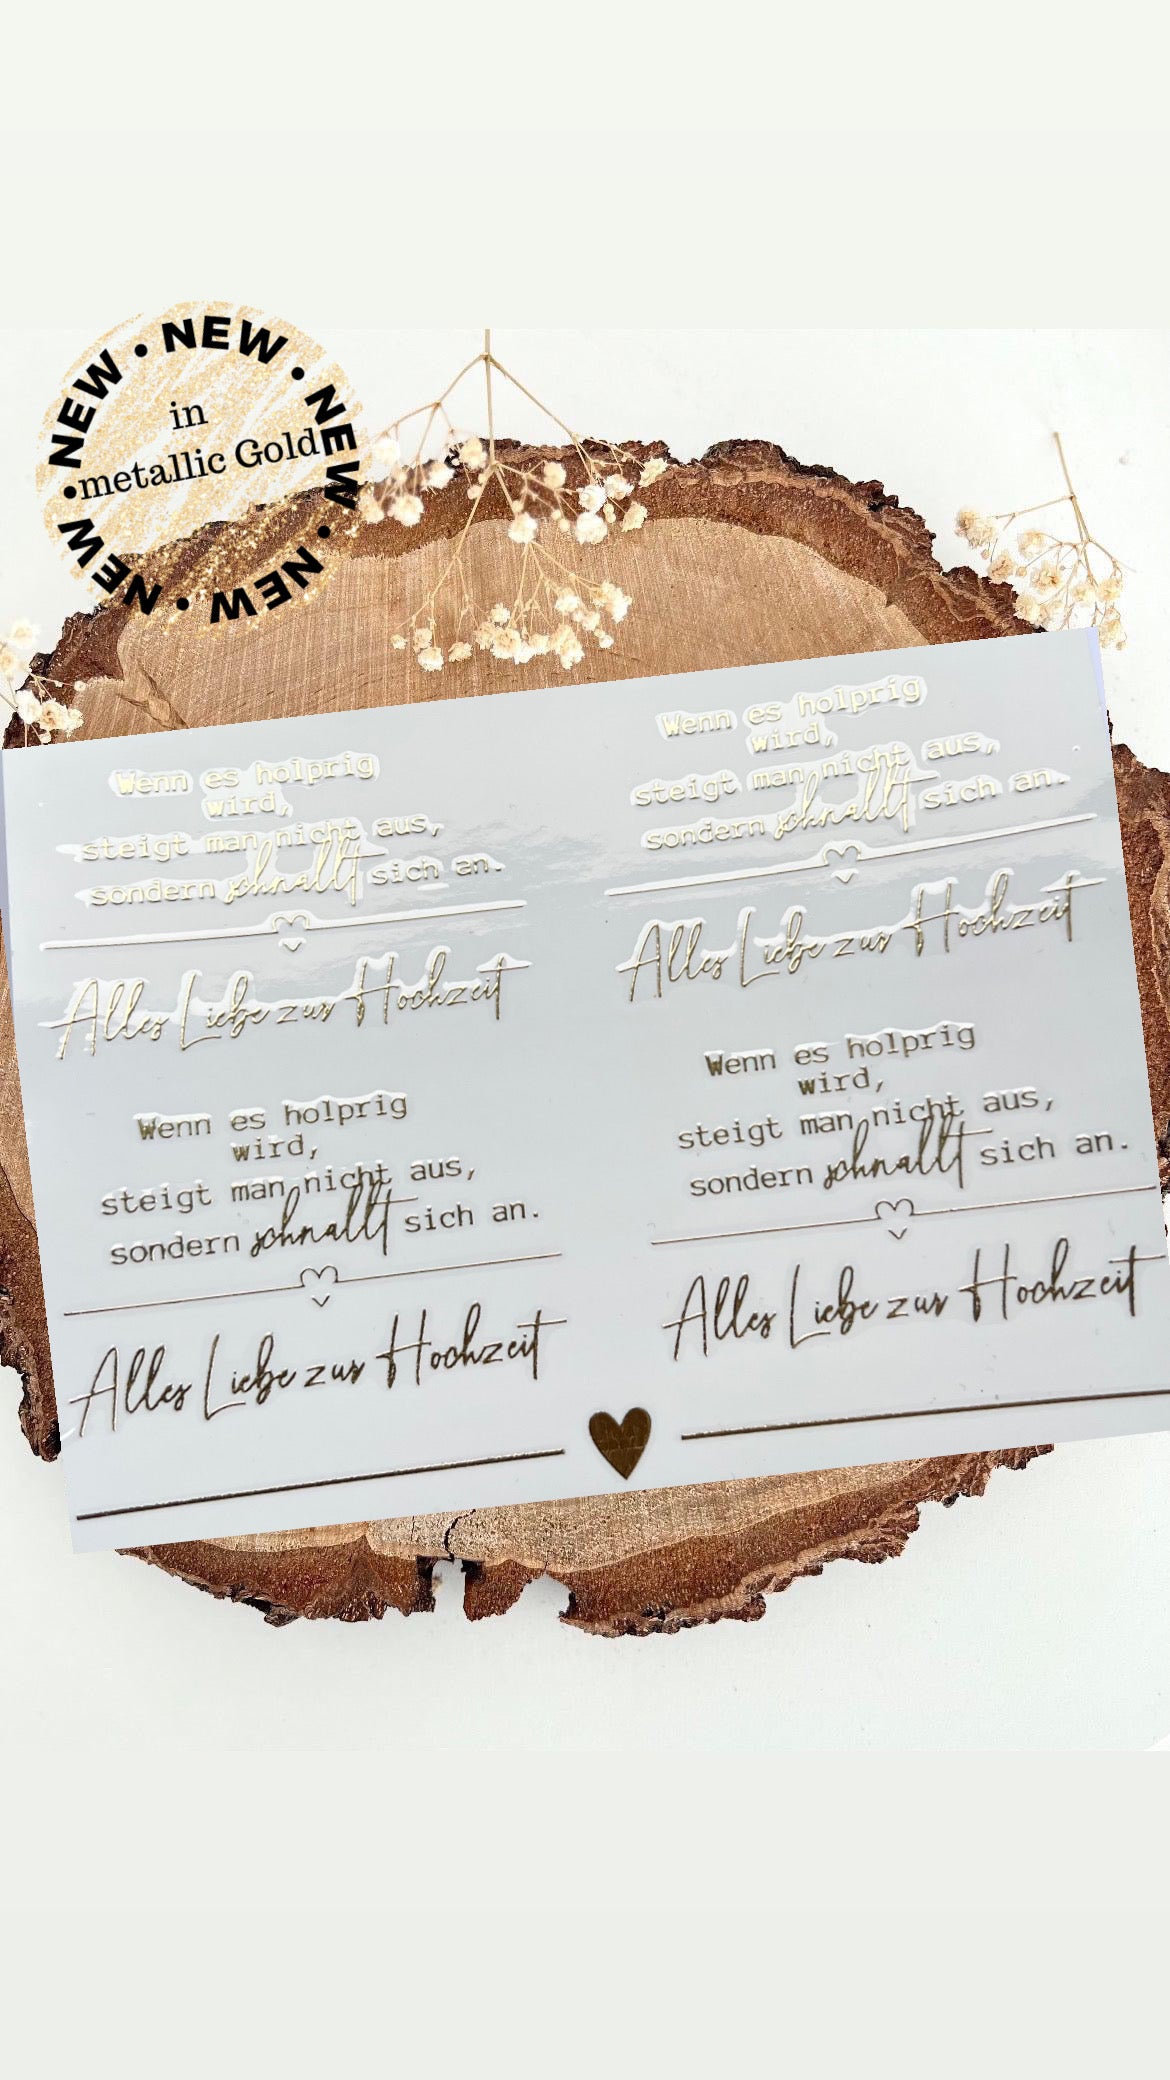 NEW • NEW • NEW • NEW • NEW • NEW •
in
metallic Gold
Wenn es holprig
wird,
steigt man nicht aus,
sondern schnallt sich an.
Alles Liebe zur Hochzeit
Wenn es holprig
wird,
steigt man nicht aus,
sondern schnallt sich an.
Alles Liebe zur Hochzeit
Wenn es holprig
wird,
steigt man nicht aus,
sondern schnallt sich an.
Alles Liebe zur Hochzeit
Wenn es holprig
wird,
steigt man nicht aus,
sondern schnallt sich an.
Alles Liebe zur Hochzeit